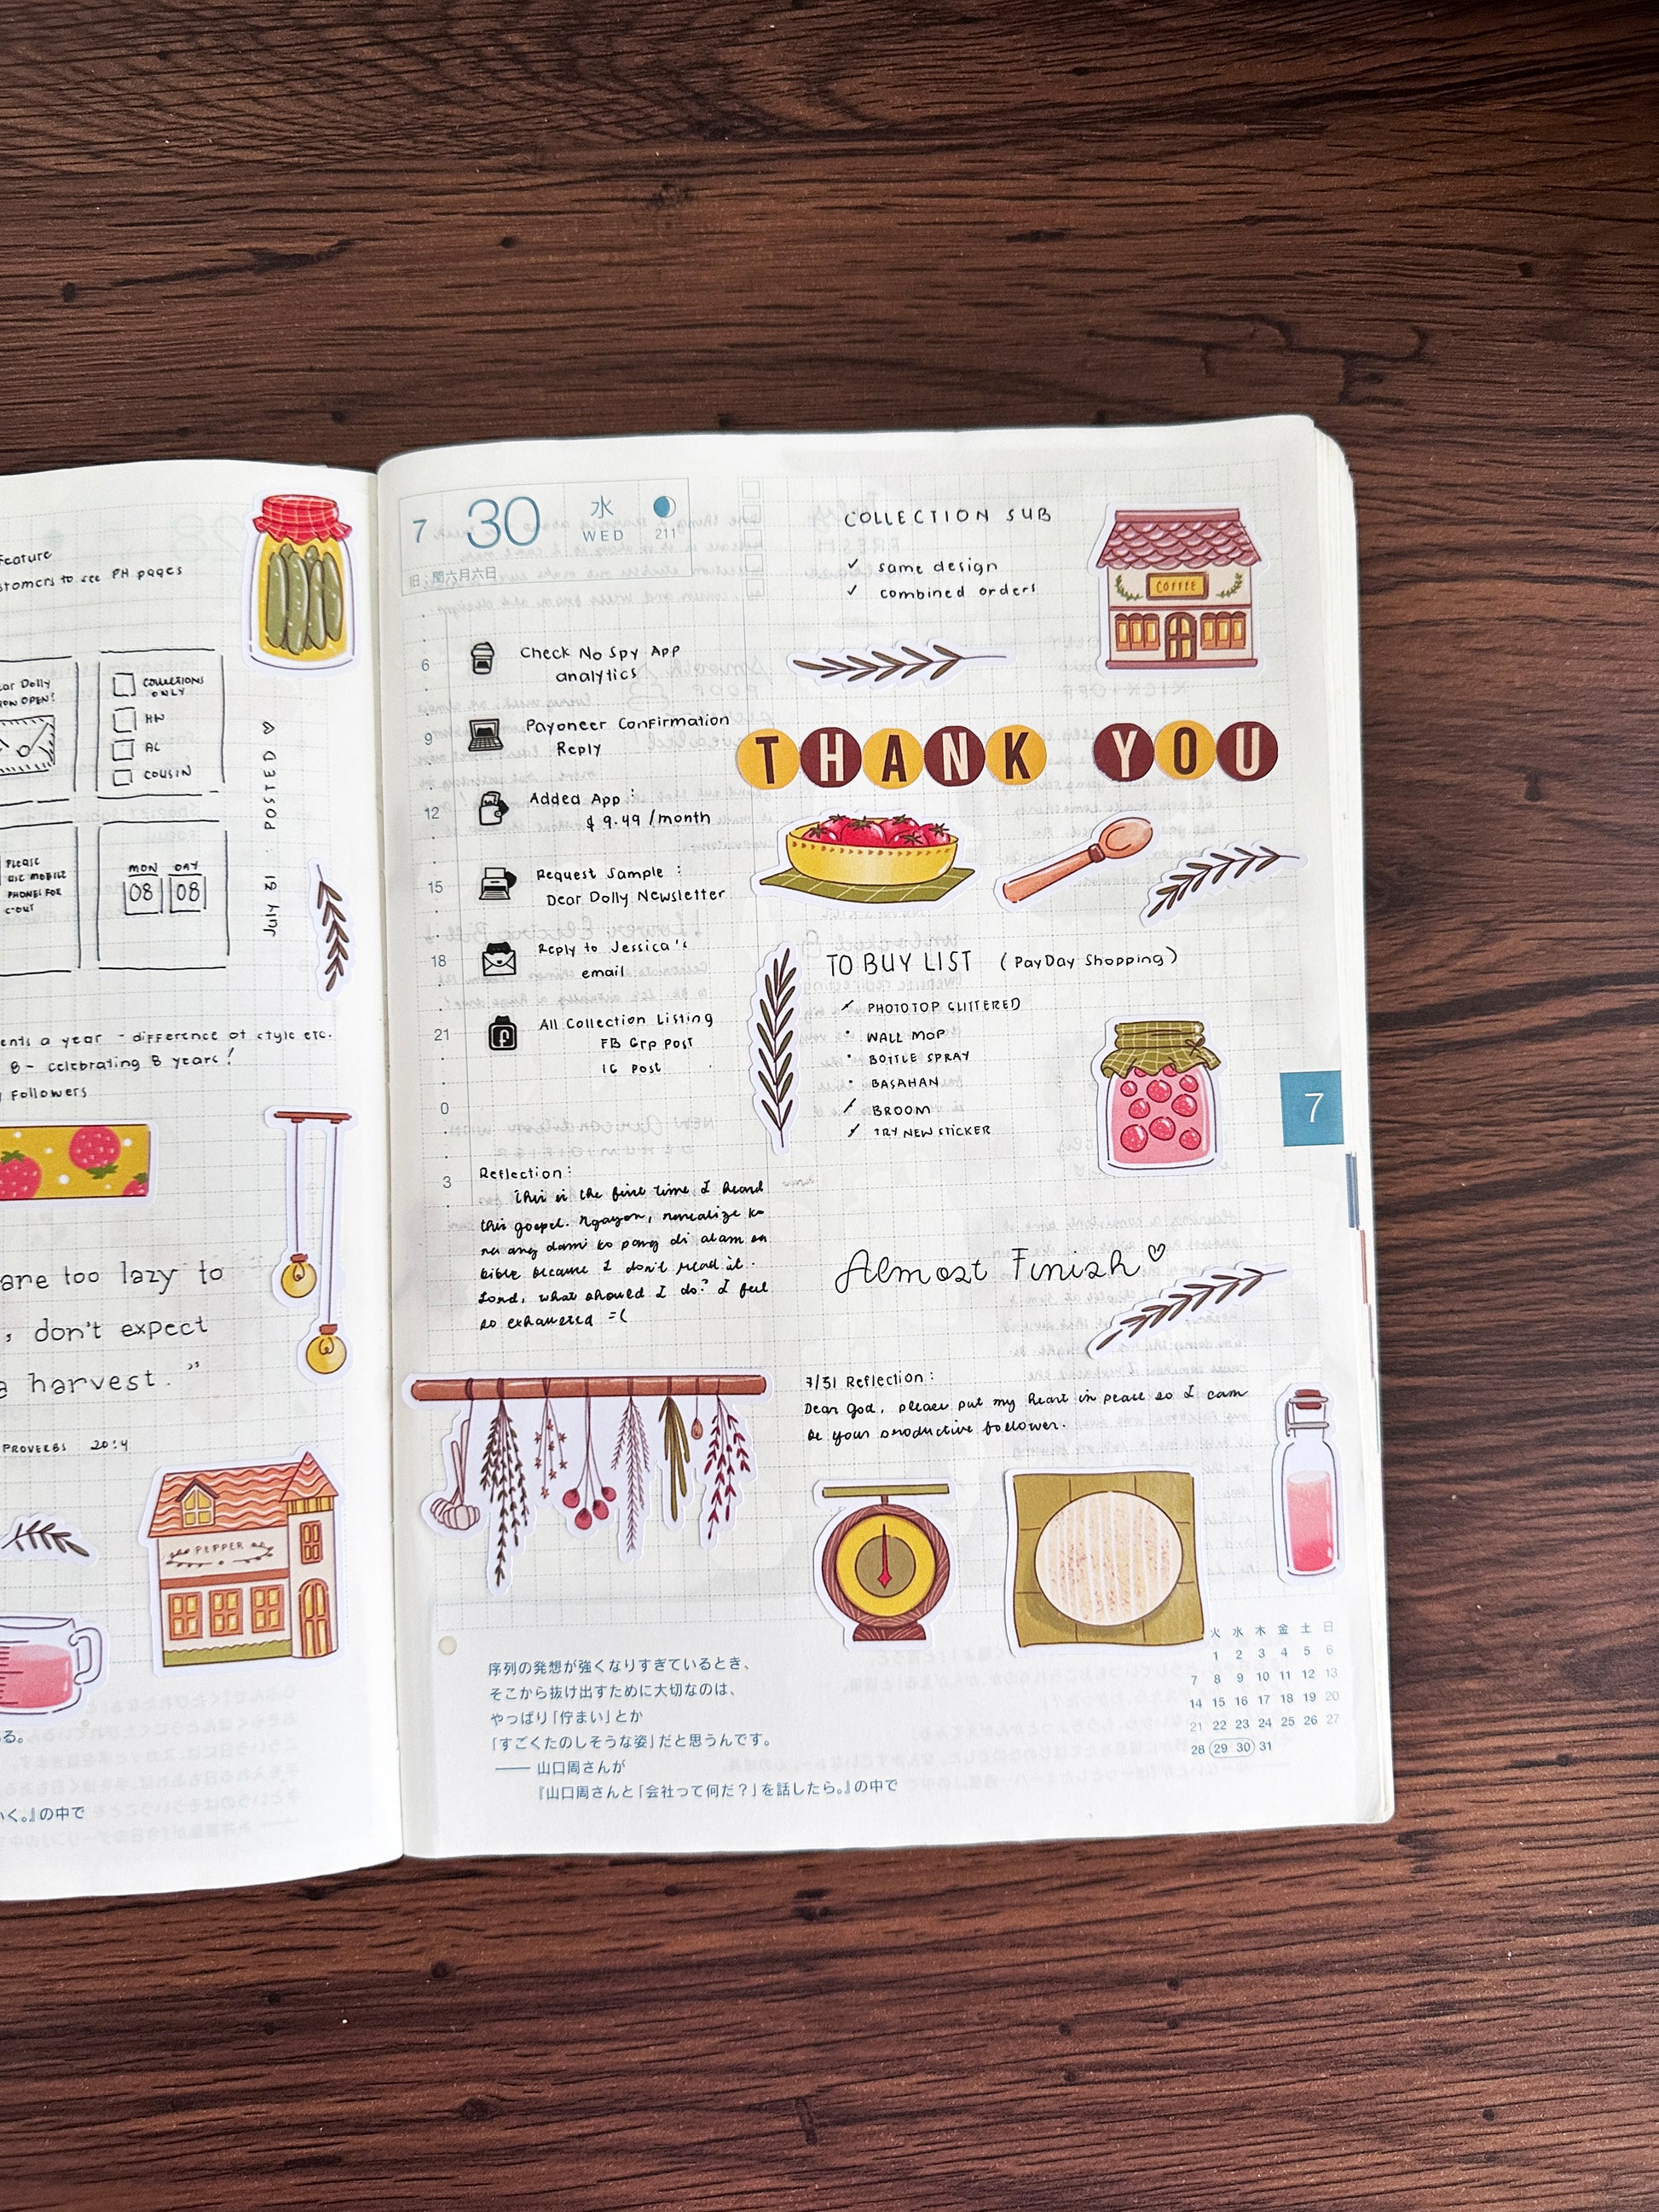 Feature
stomers to see PH pages
ar Dolly
NOW OPEN!
COLLECTIONS
ONLY
HW
AL
COUSIN
PLEASE
USE MOBILE
PHONES FOR
C-OUT
MON DAY
08 08
July 31 . POSTED ♡
ents a year - difference of style etc.
8 - celebrating 8 years!
Followers
are too lazy to
, don't expect
a harvest."
PROVERBS 20:4
PEPPER
る。
いく。』の中で
7 30 水
WED 211
旧 閏六月六日
6 Check No Spy App
analytics
9 Payoneer Confirmation
Reply
12 Added App :
$ 9.49 /month
15 Request Sample :
Dear Dolly Newsletter
18 Reply to Jessica's
email
21 All Collection Listing
FB Grp Post
IG Post
0
3
Reflection :
This is the first time I heard
this gospel. Ngayon, narealize ko
na ang dami ko pang di alam sa
bible because I don't read it.
Lord, what should I do? I feel
so exhausted =(
COLLECTION SUB
✓ same design
✓ combined orders
COFFEE
THANK YOU
TO BUY LIST (PayDay Shopping)
PHOTOTOP GLITTERED
• WALL MOP
• BOTTLE SPRAY
• BASAHAN
BROOM
TRY NEW STICKER
7
Almost Finish ♡
7/31 Reflection :
Dear God, please put my heart in peace so I can
be your productive follower.
序列の発想が強くなりすぎているとき、
そこから抜け出すために大切なのは、
やっぱり「佇まい」とか
「すごくたのしそうな姿」だと思うんです。
—— 山口周さんが
『山口周さんと「会社って何だ?」を話したら。』の中で
火 水 木 金 土 日
1 2 3 4 5 6
7 8 9 10 11 12 13
14 15 16 17 18 19 20
21 22 23 24 25 26 27
28 29 30 31